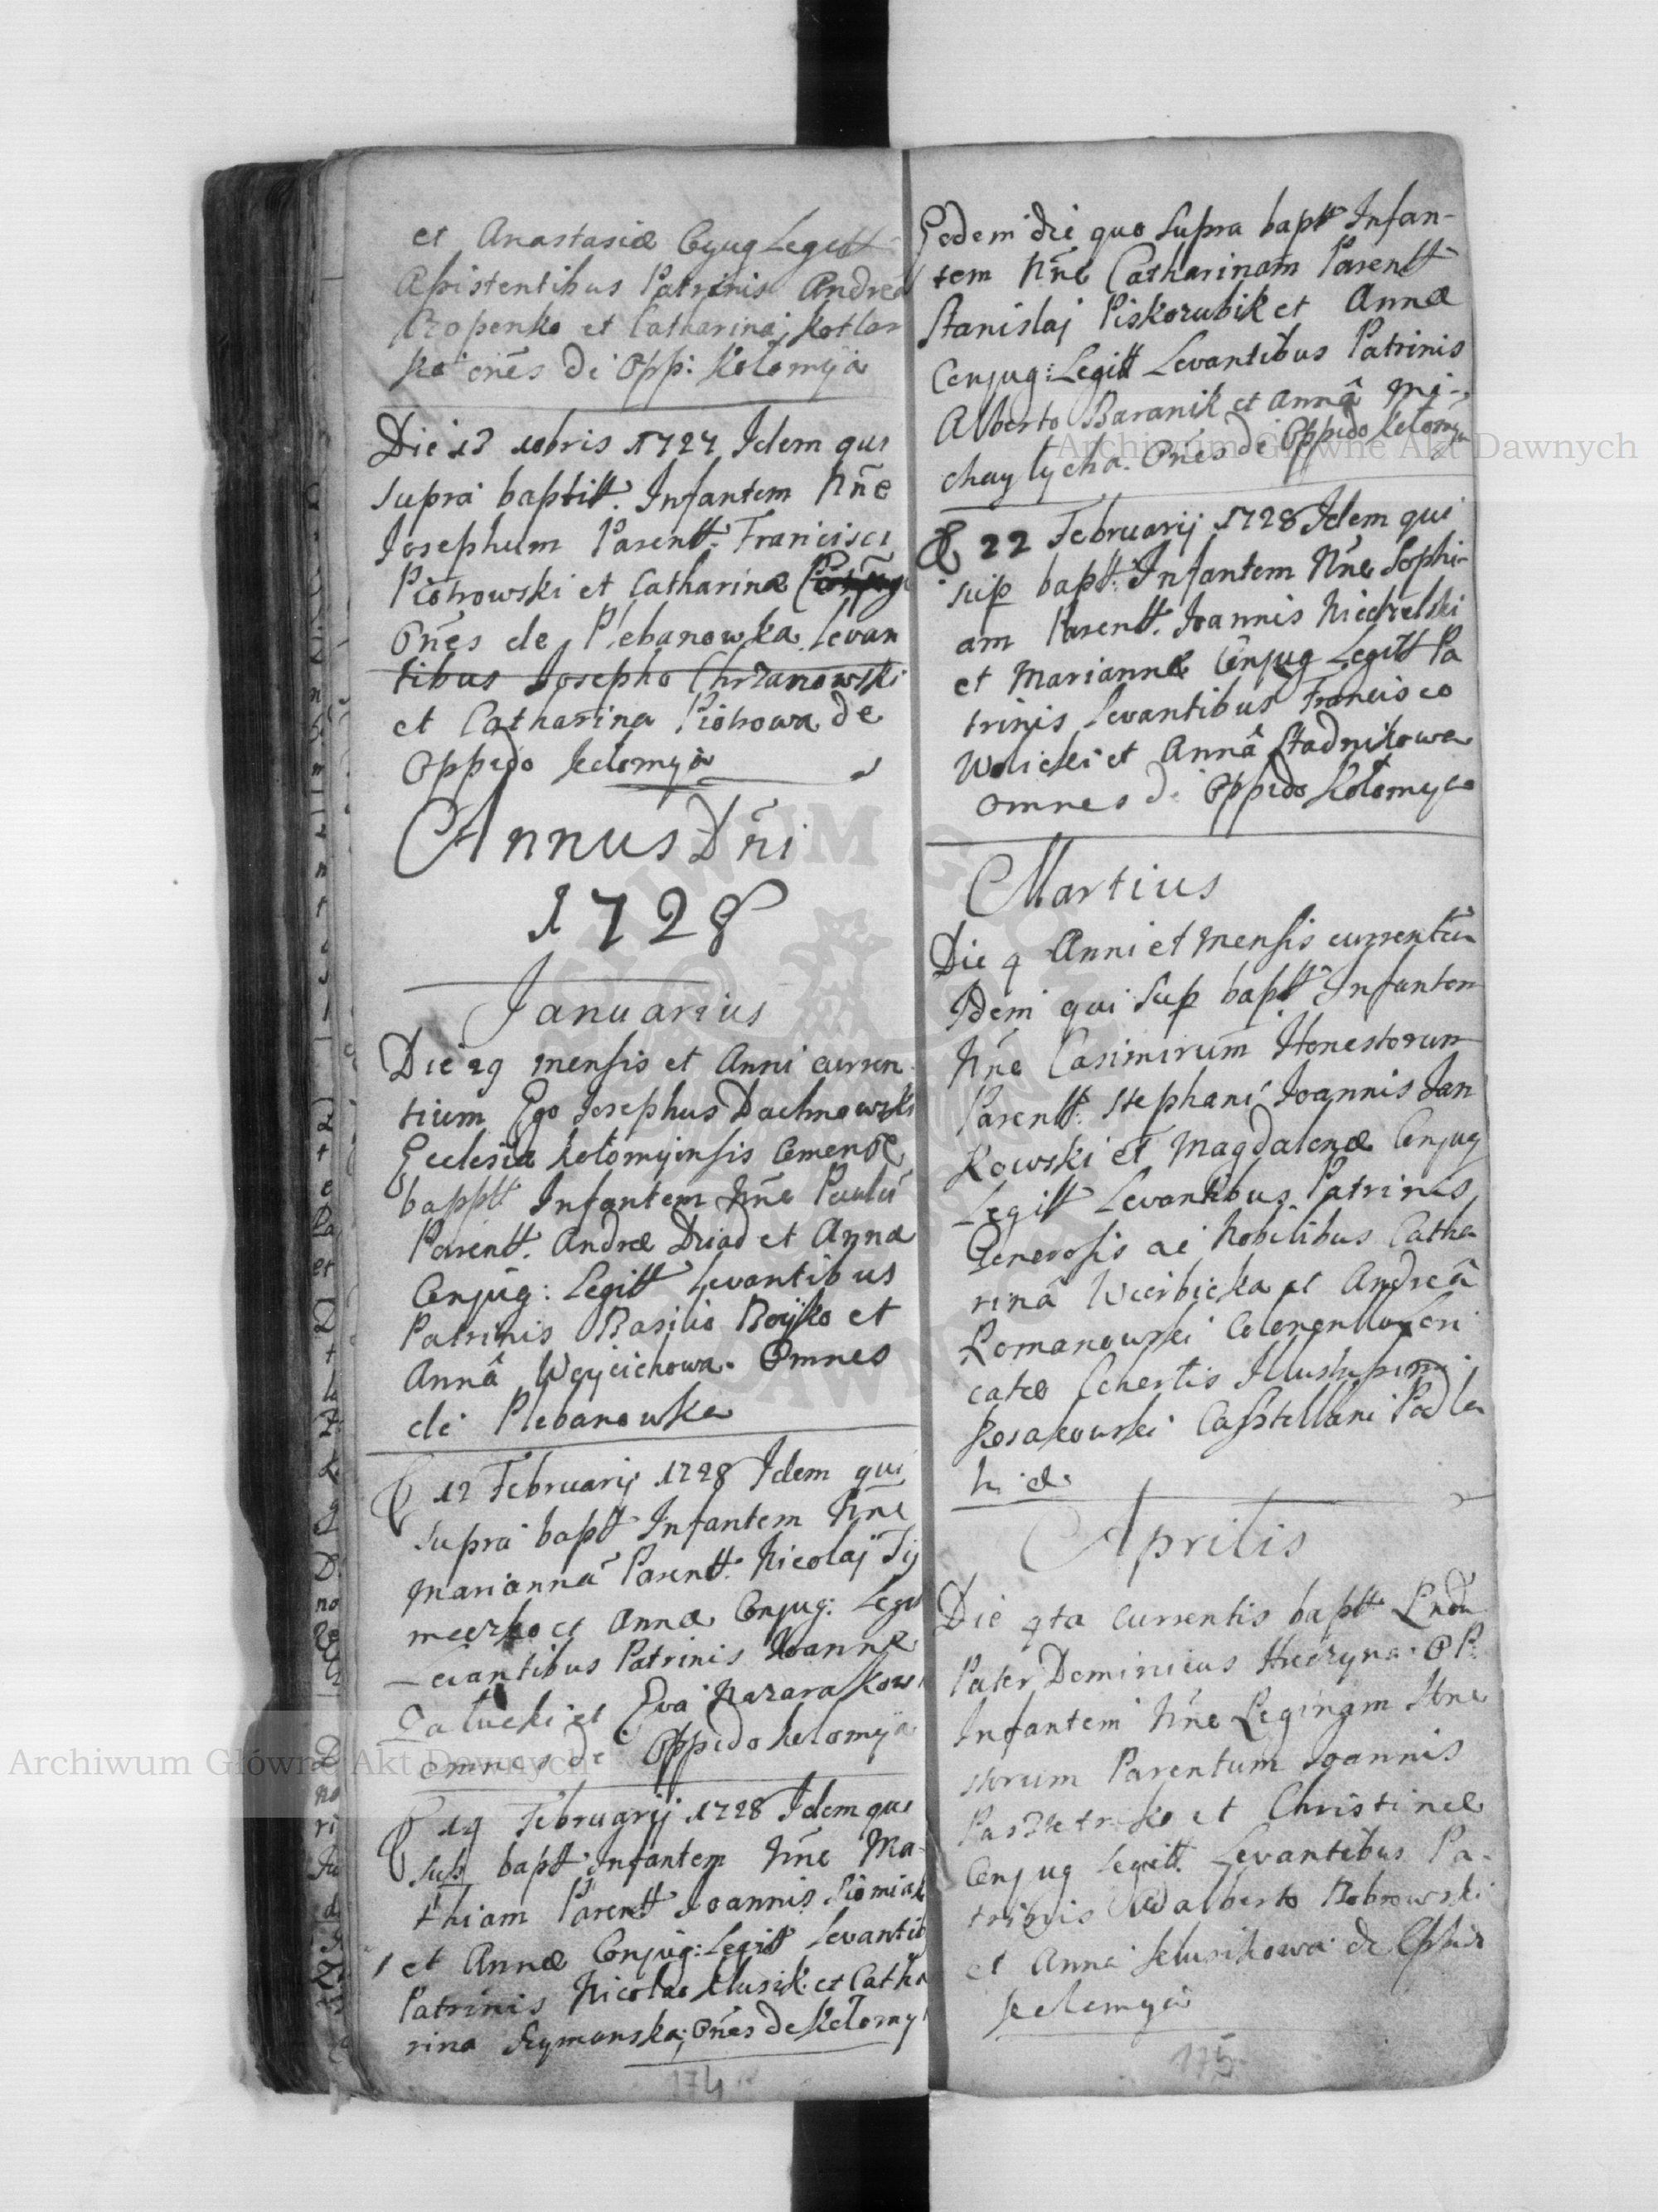 et Anastasiæ Cõjug Legitt
Assistentibus Patrinis Andrea
Czopenko et Catharina Kotlar
ka oñes de Opp: Kołomyia
Die 13 10bris 1727 Idem qui
supra baptitt. Infantem Nñe
Josephum Parentt. Francisci
Piotrowski et Catharinæ
Oñes de Plebanowka Levan
tibus Josepho Chrzanowski
et Catharina Piotrowa de
Oppido Kołomyia
Annus Dñi
1728
Januarius
Die 29 mensis et Anni curren
tium Ego Josephus Dachnowski
Ecclesiæ Kołomyiensis Comend
baptt Infantem Nñe Paulũ
Parentt. Andreæ Driad et Annæ
Conjug: Legitt Levantibus
Patrinis Basilio Boyko et
Annâ Woyciechowa. Omnes
de Plebanowka
D 12 Februarij 1728 Idem qui
supra baptt Infantem Nñe
Mariannã Parentt. Nicolaj Ty
meczko et Annæ Conjug: Legit
Levantibus Patrinis Joanne
Załucki et Eva Nazaraskow
omnes de Oppido Kołomyia
D 19 Februarij 1728 Idem qui
sup baptt Infantem Nñe Ma
thiam Parentt Joannis Siomiak
et Annæ Conjug: Legitt Levantib
Patrinis Nicolao Klusik et Catha
rina Szymanska, Oñes de Kołomy
174
Eodem die quo supra baptt Infan-
tem Nñe Catharinam Parentt
Stanislaj Piskozubik et Annæ
Conjug: Legitt Levantibus Patrinis
Alberto Baranik et Annâ Mi-
chaylycha. Oñes de Oppido Kołomyia
D 22 Februarij 1728 Idem qui
sup baptt: Infantem Nñe Sophi-
am Parentt. Joannis Niedzielski
et Mariannæ Cõnjug Legitt Pa
trinis Levantibus Francisco
Wolicki et Annâ Stadnikowa
omnes de Oppido Kołomya
Martius
Die 4 Anni et Mensis currentiũ
Idem qui sup baptt Infantem
Nñe Casimirum Honestorum
Parentt: Stephani Joannis Jan
kowski et Magdalenæ Conjug
Legitt Levantibus Patrinis
Generosis ac Nobilibus Catha
rinâ Wierbicka et Andreâ
Romanowski
catæ Illustrissimi
Kosakowski Casstellani Podla
hiæ
Aprilis
Die 4ta currentis baptt Rndũ
Pater Dominicus OP:
Infantem Nñe Reginam Hone
storum Parentum Joannis
et Christinæ
Conjug Legitt. Levantibus Pa-
trinis Adalberto Bobrowski
et Anna Klusikowa de Oppido
Kołomyia
175
Archiwum Główne Akt Dawnych
Archiwum Główne Akt Dawnych